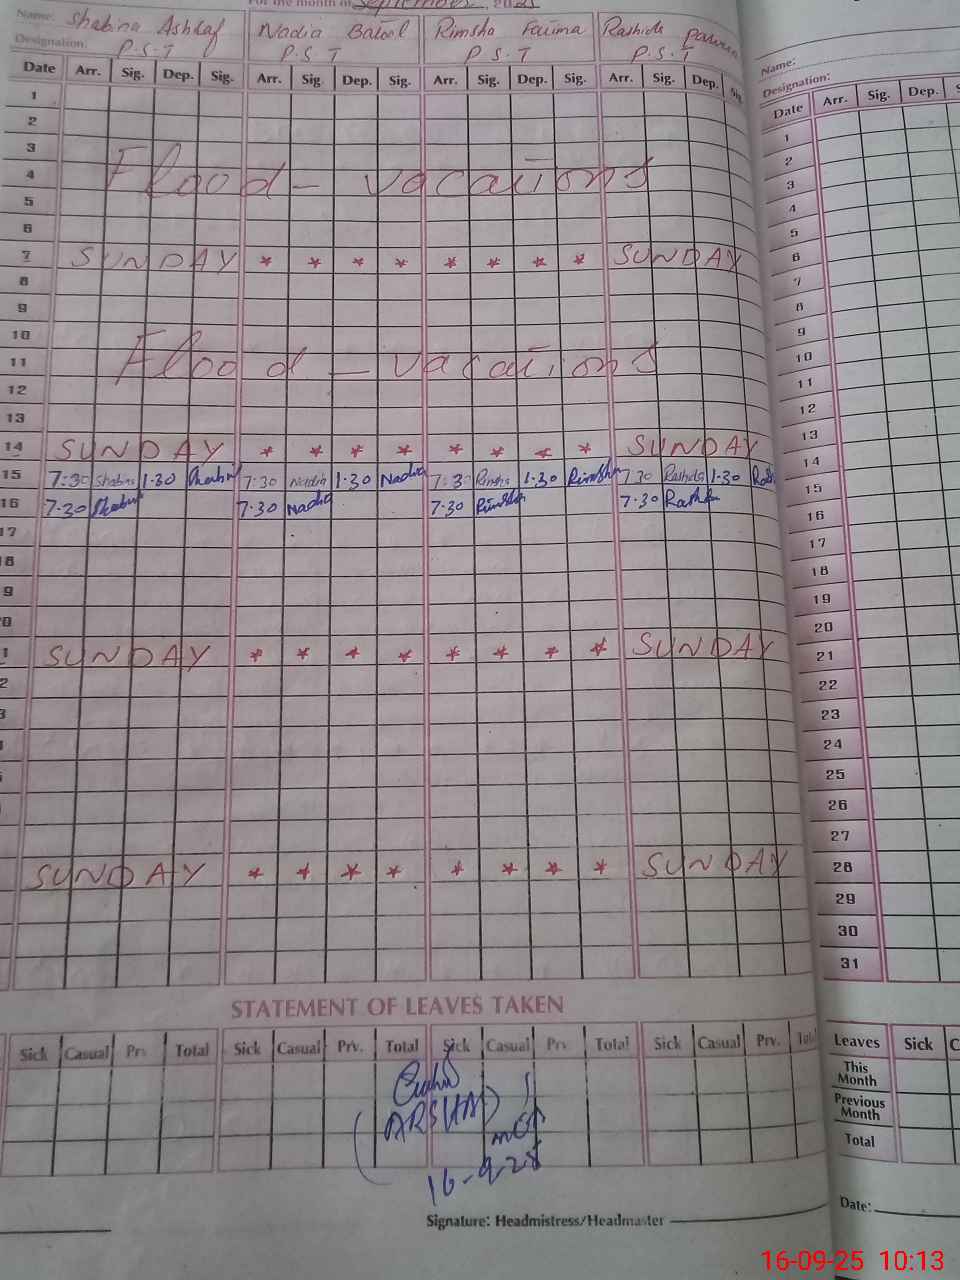 For the month of September, 2025
Name: Shabina Ashraf Nadia Batool Rimsha Fatima Rashida Parveen
Designation. P.S.T P.S.T P.S.T P.S.T
Date Arr. Sig. Dep. Sig. Arr. Sig. Dep. Sig. Arr. Sig. Dep. Sig. Arr. Sig. Dep. Sig.
1
2
3
4 Flood - vacations
5
6
7 SUNDAY * * * * * * * * SUNDAY
8
9
10
11 Flood - vacations
12
13
14 SUNDAY * * * * * * * * SUNDAY
15 7:30 Shabina 1.30 Shabina 7:30 Nadia 1.30 Nadia 7:30 Rimsha 1.30 Rimsha 7 30 Rashida 1.30
16 7.30 Shabina 7.30 Nadia 7.30 Rimsha 7.30 Rashida
17
18
9
0
1 SUNDAY * * * * * * * * SUNDAY
2
3
SUNDAY * * * * * * * * SUNDAY
STATEMENT OF LEAVES TAKEN
Sick Casual Prv. Total Sick Casual Prv. Total Sick Casual Prv. Total Sick Casual Prv. Total
(ARSHAD)
16-9-25
Signature: Headmistress/Headmaster
Name:
Designation:
Date Arr. Sig. Dep. S
1
2
3
4
5
6
7
8
9
10
11
12
13
14
15
16
17
18
19
20
21
22
23
24
25
26
27
28
29
30
31
Leaves Sick C
This Month
Previous Month
Total
Date:
16-09-25 10:13